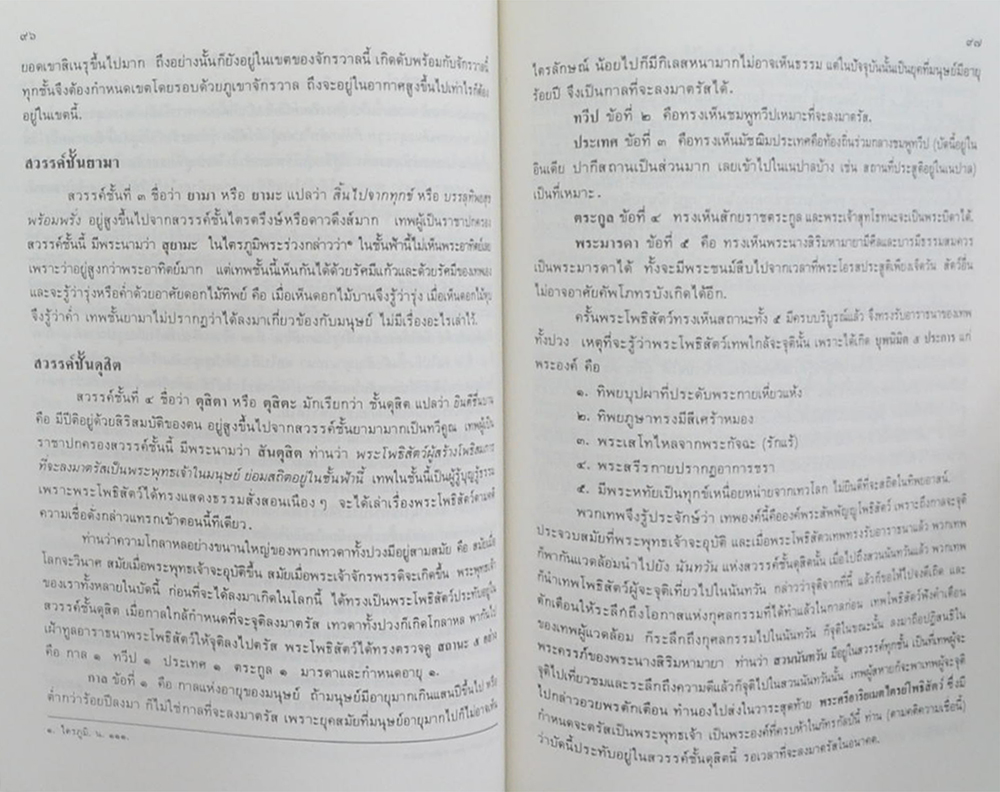 ๙๖
ยอดเขาสิเนรุขึ้นไปมาก ถึงอย่างนั้นก็ยังอยู่ในเขตของจักรวาลนี้ เกิดดับพร้อมกับจักรวาลนี้
ทุกชั้นจึงต้องกำหนดเขตโดยรอบด้วยภูเขาจักรวาล ถึงจะอยู่ในอากาศสูงขึ้นไปเท่าไรก็ต้อง
อยู่ในเขตนี้.
สวรรค์ชั้นยามา
สวรรค์ชั้นที่ ๓ ชื่อว่า ยามา หรือ ยามะ แปลว่า สิ้นไปจากทุกข์ หรือ บรรลุทิพยสุข
พร้อมพรั่ง อยู่สูงขึ้นไปจากสวรรค์ชั้นไตรตรึงษ์หรือดาวดึงส์มาก เทพผู้เป็นราชาปกครอง
สวรรค์ชั้นนี้ มีพระนามว่า สุยามะ ในไตรภูมิพระร่วงกล่าวว่า๑ ในชั้นฟ้านี้ไม่เห็นพระอาทิตย์เลย
เพราะว่าอยู่สูงกว่าพระอาทิตย์มาก แต่เทพชั้นนี้เห็นกันได้ด้วยรัศมีแก้วและด้วยรัศมีของเทพเอง
และจะรู้ว่ารุ่งหรือค่ำด้วยอาศัยดอกไม้ทิพย์ คือ เมื่อเห็นดอกไม้บานจึงรู้ว่ารุ่ง เมื่อเห็นดอกไม้หุบ
จึงรู้ว่าค่ำ เทพชั้นยามาไม่ปรากฏว่าได้ลงมาเกี่ยวข้องกับมนุษย์ ไม่มีเรื่องอะไรเล่าไว้.
สวรรค์ชั้นดุสิต
สวรรค์ชั้นที่ ๔ ชื่อว่า ตุสิตา หรือ ตุสิตะ มักเรียกว่า ชั้นดุสิต แปลว่า ยินดีชื่นบาน
คือ มีปีติอยู่ด้วยสิริสมบัติของตน อยู่สูงขึ้นไปจากสวรรค์ชั้นยามามากเป็นทวีคูณ เทพผู้เป็น
ราชาปกครองสวรรค์ชั้นนี้ มีพระนามว่า สันตุสิต ท่านว่า พระโพธิสัตว์ผู้สร้างโพธิสมภาร
ที่จะลงมาตรัสเป็นพระพุทธเจ้าในมนุษย์ ย่อมสถิตอยู่ในชั้นฟ้านี้ เทพในชั้นนี้เป็นผู้รู้บุญรู้ธรรม
เพราะพระโพธิสัตว์ได้ทรงแสดงธรรมสั่งสอนเนือง ๆ จะได้เล่าเรื่องพระโพธิสัตว์ตามคติ
ความเชื่อดังกล่าวแทรกเข้าตอนนี้ทีเดียว.
ท่านว่าความโกลาหลอย่างขนานใหญ่ของพวกเทวดาทั้งปวงมีอยู่สามสมัย คือ สมัยเมื่อ
โลกจะวินาศ สมัยเมื่อพระพุทธเจ้าจะอุบัติขึ้น สมัยเมื่อพระเจ้าจักรพรรดิจะเกิดขึ้น พระพุทธเจ้า
ของเราทั้งหลายในบัดนี้ ก่อนที่จะได้ลงมาเกิดในโลกนี้ ได้ทรงเป็นพระโพธิสัตว์ประทับอยู่ใน
สวรรค์ชั้นดุสิต เมื่อกาลใกล้กำหนดที่จะจุติลงมาตรัส เทวดาทั้งปวงก็เกิดโกลาหล พากันไป
เฝ้าทูลอาราธนาพระโพธิสัตว์ให้จุติลงไปตรัส พระโพธิสัตว์ได้ทรงตรวจดู สถานะ ๕ อย่าง
คือ กาล ๑ ทวีป ๑ ประเทศ ๑ ตระกูล ๑ มารดาและกำหนดอายุ ๑.
กาล ข้อที่ ๑ คือ กาลแห่งอายุของมนุษย์ ถ้ามนุษย์มีอายุมากเกินแสนปีขึ้นไป หรือ
ต่ำกว่าร้อยปีลงมา ก็ไม่ใช่กาลที่จะลงมาตรัส เพราะยุคสมัยที่มนุษย์อายุมากไปก็ไม่อาจเห็น
๑. ไตรภูมิ. น. ๑๑๑.
๙๗
ไตรลักษณ์ น้อยไปก็มีกิเลสหนามากไม่อาจเห็นธรรม แต่ในปัจจุบันนั้นเป็นยุคที่มนุษย์มีอายุ
ร้อยปี จึงเป็นกาลที่จะลงมาตรัสได้.
ทวีป ข้อที่ ๒ คือทรงเห็นชมพูทวีปเหมาะที่จะลงมาตรัส.
ประเทศ ข้อที่ ๓ คือทรงเห็นมัชฌิมประเทศคือท้องถิ่นร่วมกลางชมพูทวีป (บัดนี้อยู่ใน
อินเดีย ปากีสถานเป็นส่วนมาก เลยเข้าไปในเนปาลบ้าง เช่น สถานที่ประสูติอยู่ในเนปาล)
เป็นที่เหมาะ.
ตระกูล ข้อที่ ๔ ทรงเห็นสักยราชตระกูล และพระเจ้าสุทโธทนะจะเป็นพระบิดาได้.
พระมารดา ข้อที่ ๕ คือ ทรงเห็นพระนางสิริมหามายามีศีลและบารมีธรรมสมควร
เป็นพระมารดาได้ ทั้งจะมีพระชนม์สืบไปจากเวลาที่พระโอรสประสูติเพียงเจ็ดวัน สัตว์อื่น
ไม่อาจอาศัยคัพโภทรบังเกิดได้อีก.
ครั้นพระโพธิสัตว์ทรงเห็นสถานะทั้ง ๕ มีครบบริบูรณ์แล้ว จึงทรงรับอาราธนาของเทพ
ทั้งปวง เหตุที่จะรู้ว่าพระโพธิสัตว์เทพใกล้จะจุตินั้น เพราะได้เกิด บุพนิมิต ๕ ประการ แก่
พระองค์ คือ
๑. ทิพยบุปผาที่ประดับพระกายเหี่ยวแห้ง
๒. ทิพยภูษาทรงมีสีเศร้าหมอง
๓. พระเสโทไหลจากพระกัจฉะ (รักแร้)
๔. พระสรีรกายปรากฏอาการชรา
๕. มีพระหทัยเป็นทุกข์เหนื่อยหน่ายจากเทวโลก ไม่ยินดีที่จะสถิตในทิพยอาสน์.
พวกเทพจึงรู้ประจักษ์ว่า เทพองค์นี้คือองค์พระสัพพัญญูโพธิสัตว์ เพราะถึงกาลจะจุติ
ประจวบสมัยที่พระพุทธเจ้าจะอุบัติ และเมื่อพระโพธิสัตว์เทพทรงรับอาราธนาแล้ว พวกเทพ
ก็พากันแวดล้อมนำไปยัง นันทวัน แห่งสวรรค์ชั้นดุสิตนั้น เมื่อไปถึงสวนนันทวันแล้ว พวกเทพ
ก็นำเทพโพธิสัตว์ผู้จะจุติเที่ยวไปในนันทวัน กล่าวว่าจุติจากที่นี้ แล้วก็ขอให้ไปจงดีเถิด และ
ตักเตือนให้ระลึกถึงโอกาสแห่งกุศลกรรมที่ได้ทำแล้วในกาลก่อน เทพโพธิสัตว์ฟังคำเตือน
ของเทพผู้แวดล้อม ก็ระลึกถึงกุศลกรรมไปในนันทวัน ก็จุติในขณะนั้น ลงมาถือปฏิสนธิใน
พระครรภ์ของพระนางสิริมหามายา ท่านว่า สวนนันทวัน มีอยู่ในสวรรค์ทุกชั้น เป็นที่เทพผู้จะ
จุติไปเที่ยวชมและระลึกถึงความดีแล้วก็จุติไปในสวนนันทวันนั้น เทพผู้สหายก็จะพาเทพผู้จะจุติ
ไปกล่าวอวยพรตักเตือน ทำนองไปส่งในวาระสุดท้าย พระศรีอาริยเมตไตรย์โพธิสัตว์ ซึ่งมี
กำหนดจะตรัสเป็นพระพุทธเจ้า เป็นพระองค์ที่ครบห้าในภัทรกัลป์นี้ ท่าน (ตามคติความเชื่อนี้)
ว่าบัดนี้ประทับอยู่ในสวรรค์ชั้นดุสิตนี้ รอเวลาที่จะลงมาตรัสในอนาคต.